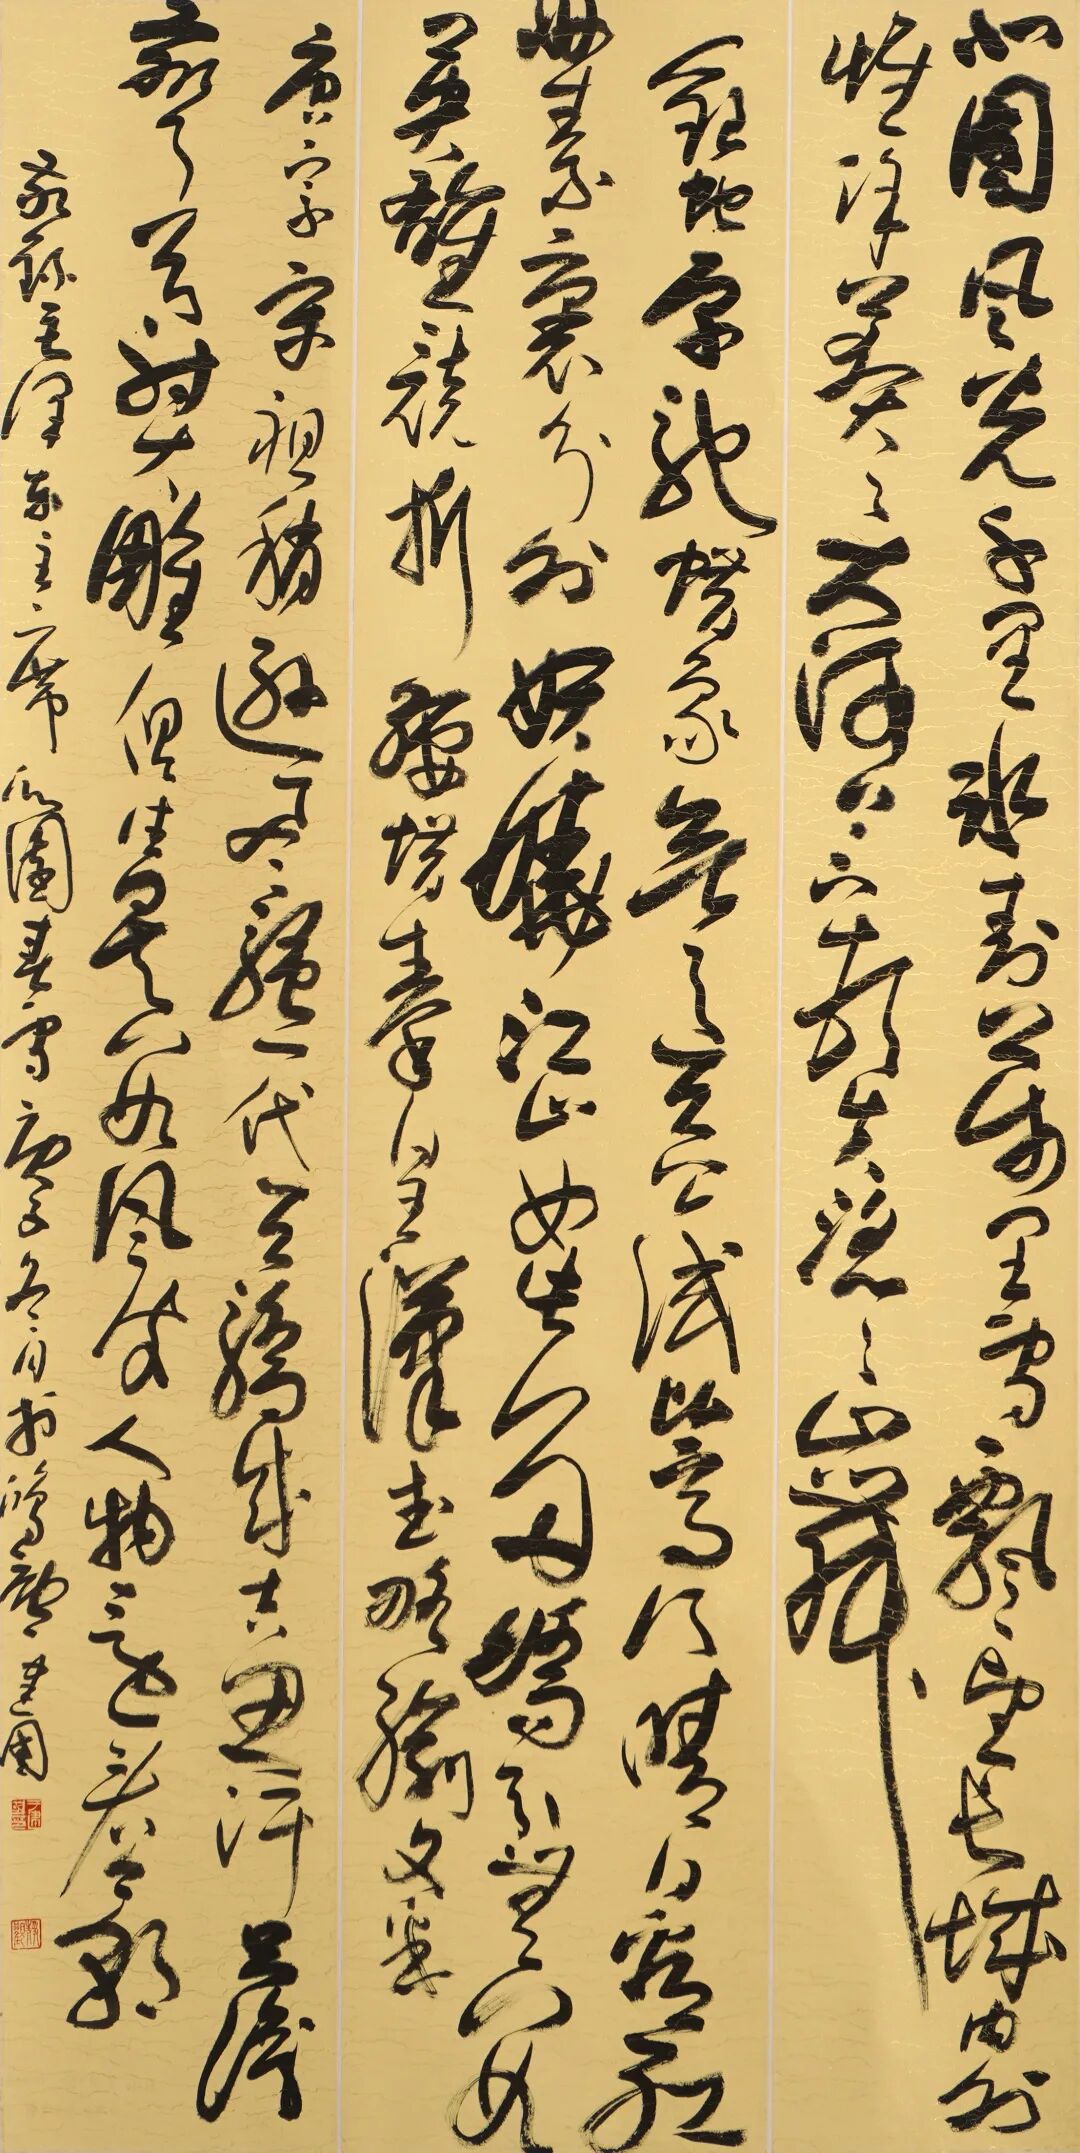 北国风光千里冰封万里雪飘望长城内外
惟馀莽莽大河上下顿失滔滔山舞
银蛇原驰蜡象欲与天公试比高须晴日看红
妆素裹分外妖娆江山如此多娇引无数
英雄競折腰惜秦皇漢武略输文采
唐宗宋祖稍逊风骚一代天骄成吉思汗只识
弯弓射大雕俱往矣数风流人物还看今朝
敬录毛泽东主席沁园春雪庚子冬月于鸿 建国